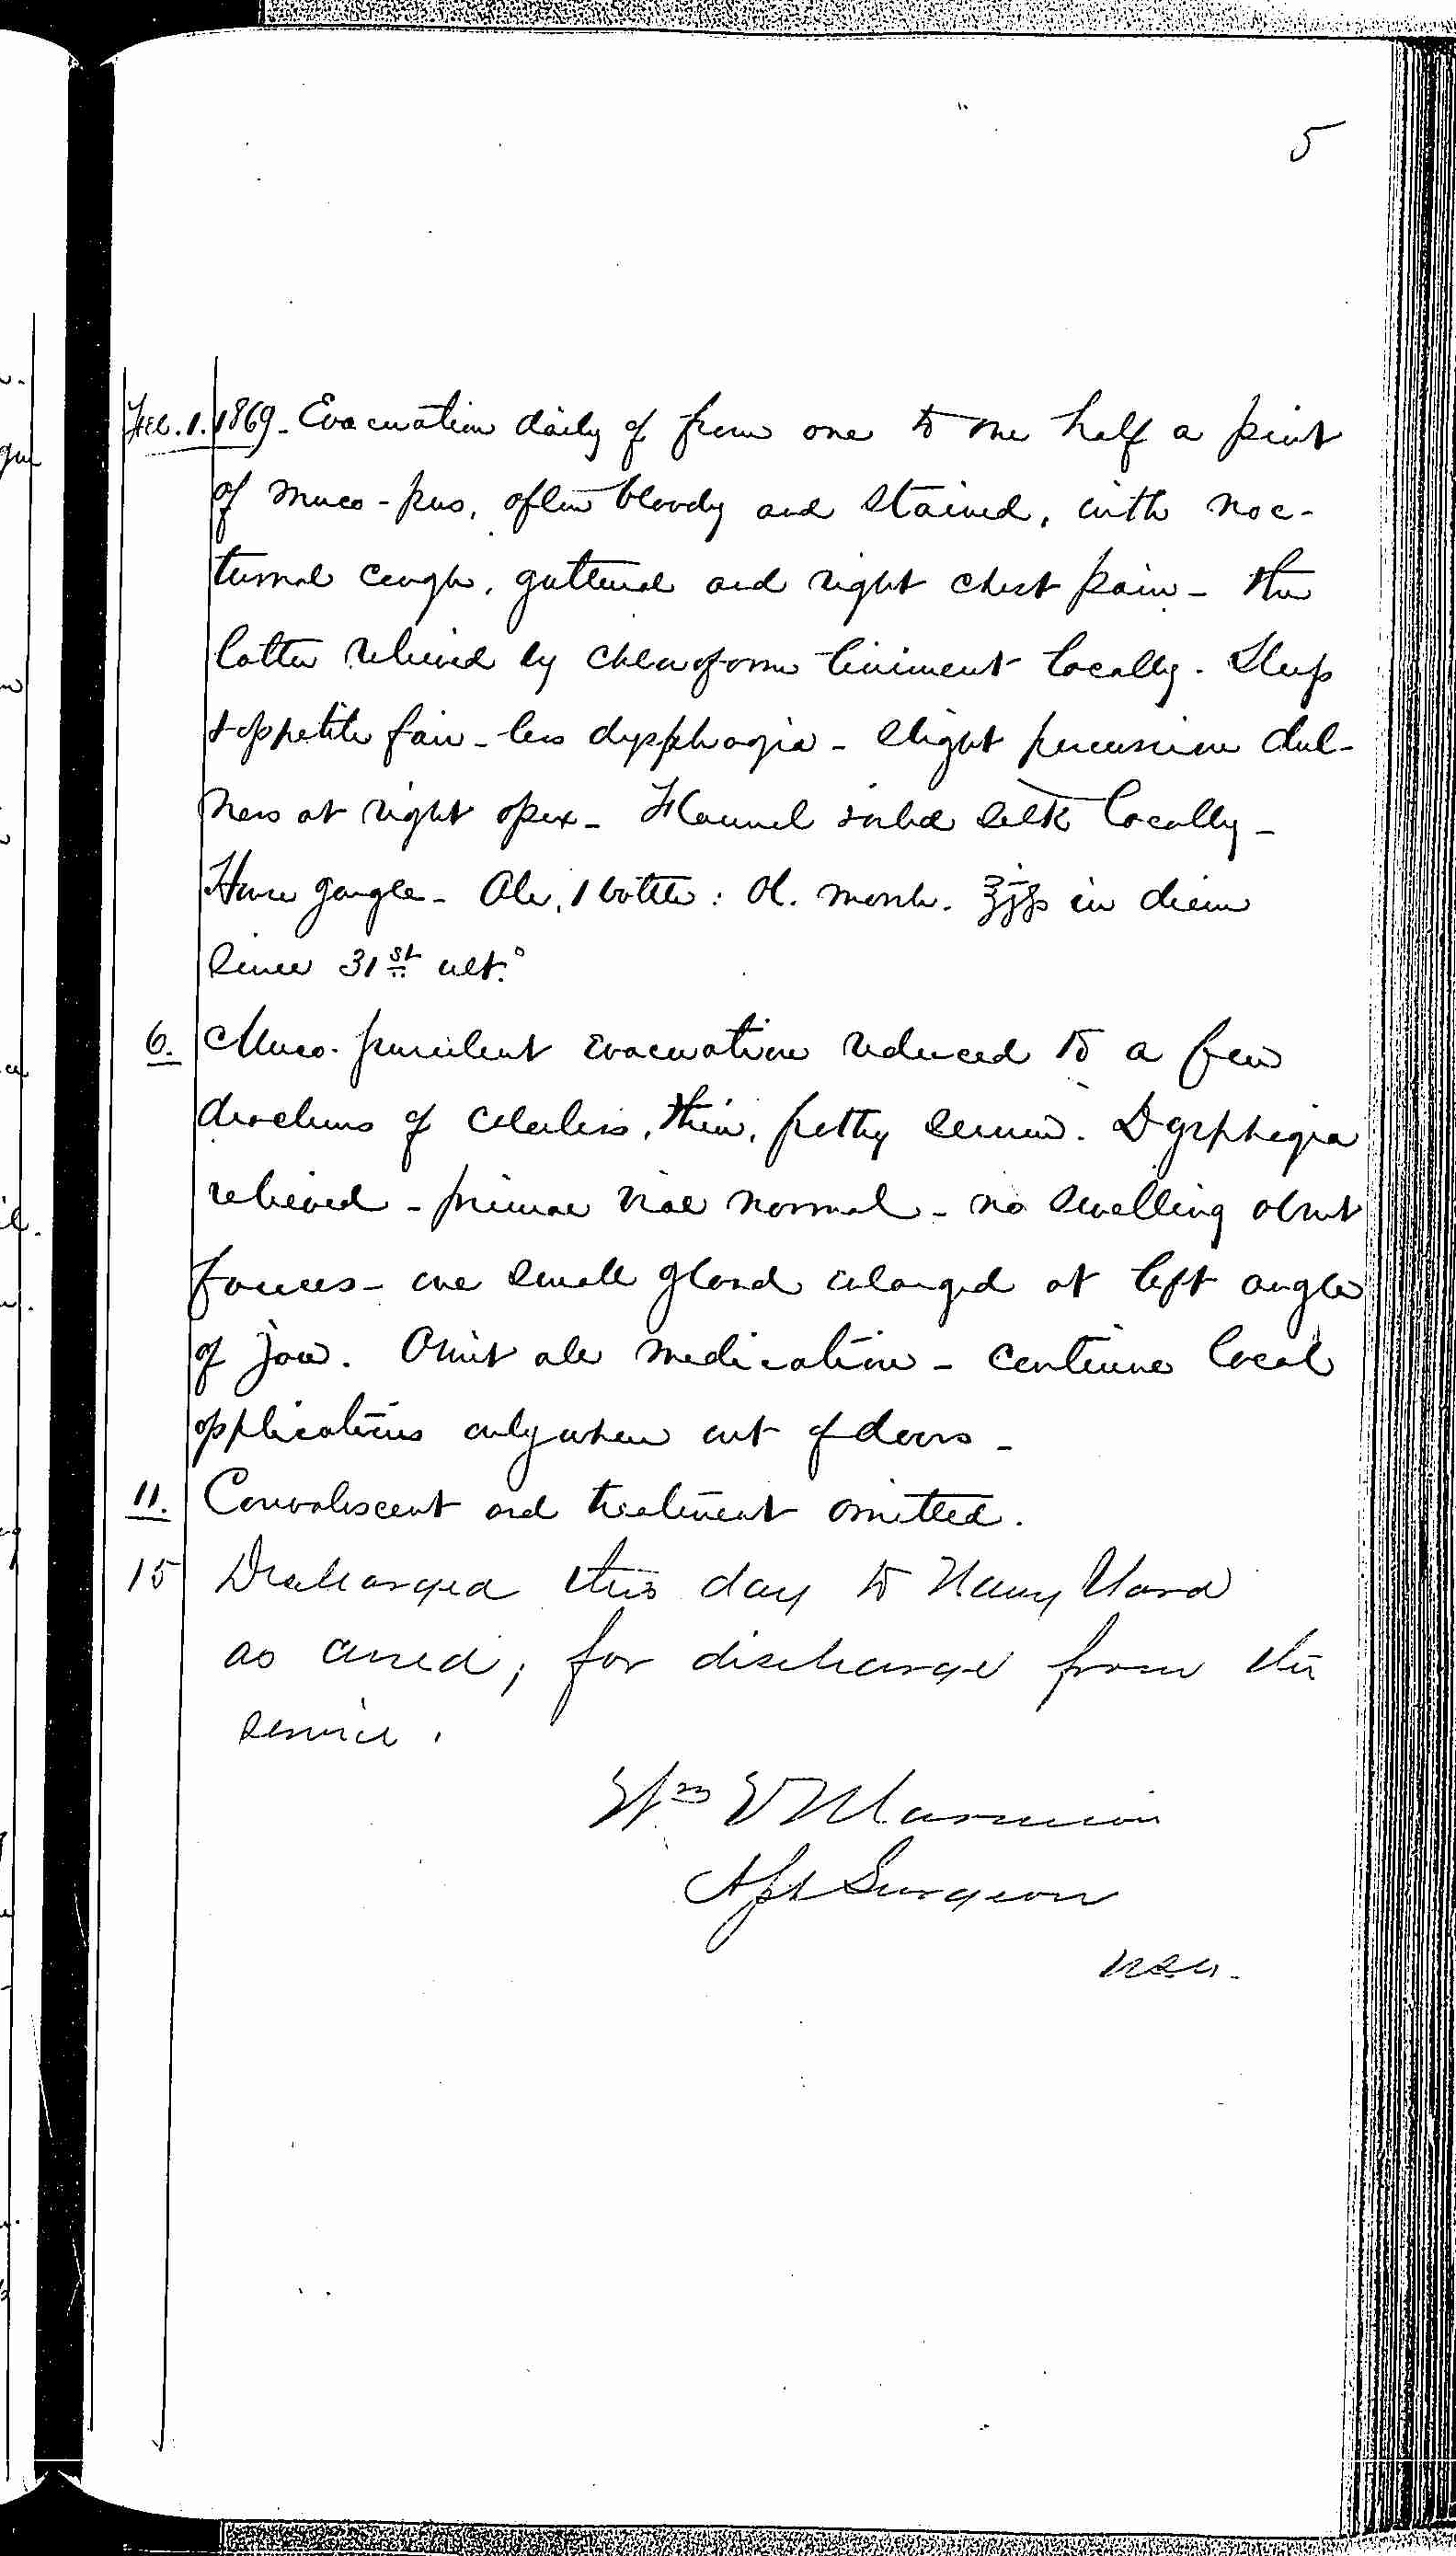 5
Feb. 1. 1869 - Evacuation daily of from one to one half a pint
of muco-pus, often bloody and stained, with noc-
turnal cough, guttural and right chest pain - the
latter relieved by chloroform liniment locally. Sleep
& appetite fair - less dysphagia - slight percussion dul-
ness at right apex - Flannel and silk locally -
gargle - Ale, 1 bottle: Ol. morrh. ℥jfs in diem
since 31st ulto
6. Muco-purulent evacuation reduced to a few
drachms of colorless, thin, frothy serum. Dysphagia
relieved - primae viae normal - no swelling about
fauces - one small gland enlarged at left angle
of jaw. Omit all medication - continue local
applications only when out of doors -
11. Convalescent and treatment omitted.
15 Discharged this day to Navy Yard
as cured; for discharge from the
service.
Wm E Marmion
Asst Surgeon
USN.